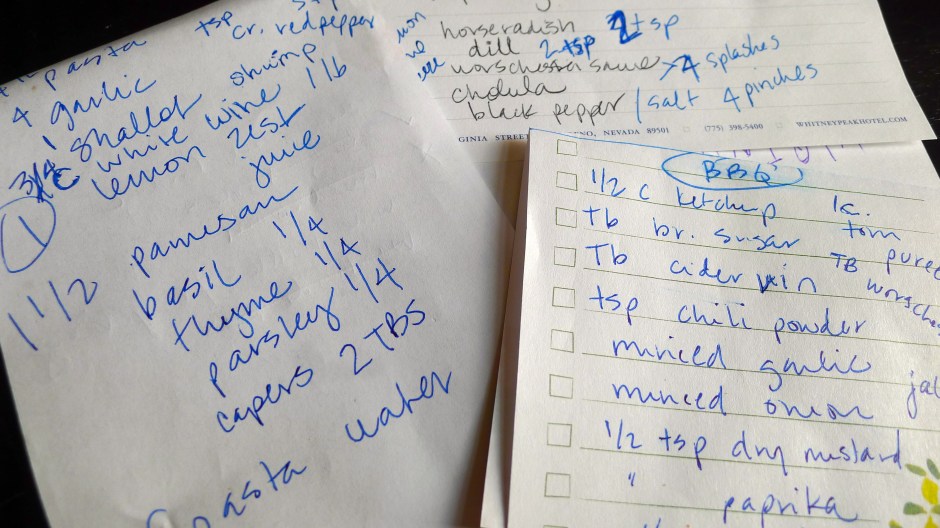 pasta tsp cr. red pepper
4 garlic
1 shallot shrimp
3/4 C white wine 1 lb
1 lemon zest
juice
1 1/2 parmesan
basil 1/4
thyme 1/4
parsley 1/4
capers 2 TBS
pasta water
horseradish
dill 2 tsp 2 tsp
worschester sauce > 4 splashes
cholula
black pepper / salt 4 pinches
GINIA STREET NO, NEVADA 89501 (775) 398-5400 WHITNEYPEAKHOTEL.COM
BBQ
1/2 c ketchup 1c.
Tb br. sugar tom
Tb cider vin TB puree
tsp chili powder worsche
minced garlic
minced onion jal
1/2 tsp dry mustard
" paprika